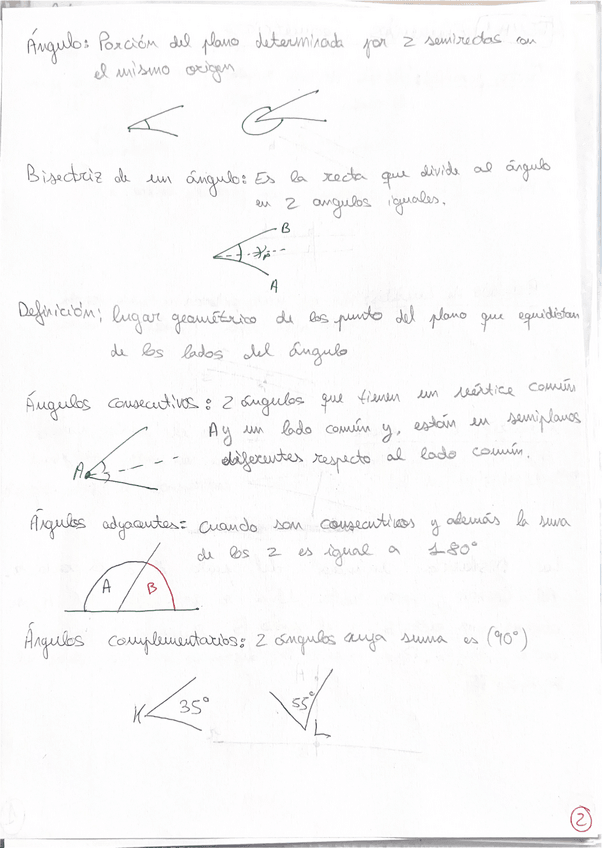 Ángulo: Porción del plano determinada por 2 semirectas con
el mismo origen
Bisectriz de un ángulo: Es la recta que divide al ángulo
en 2 angulos iguales.
B
P
A
Definición: lugar geométrico de los punto del plano que equidistan
de los lados del ángulo
Ángulos consecutivos: 2 ángulos que tienen un vértice común
A y un lado común y, están en semiplanos
diferentes respecto al lado común.
A
Ángulos adyacentes: cuando son consecutivos y además la suma
de los 2 es igual a 180°
A B
Ángulos complementarios: 2 ángulos cuya suma es (90°)
K 35°
55°
L
2